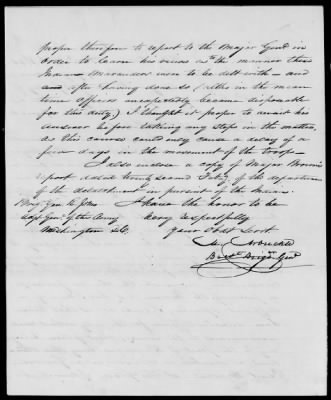 proper therefore to report to the Major Genl in
order to learn his views as to the manner these
Indian Marauders were to be delt with – and
and after having done so (altho in the mean
time officers unexpectedly became disposable
for this duty,) I thought it proper to await his
answer before taking any steps in the matter,
as this course could only cause a delay of a
few days in the movement of the troops –
I also enclose a copy of Major
report dated twenty second of the departure
of the detachment in pursuit of the Indians.
Brig Gen R Jones I have the honor to be
Adjt Genl of the Army Very respectfully
Washington D.C. Your Obdt Servt
M Arbuckle
Brevt Brigr Genl